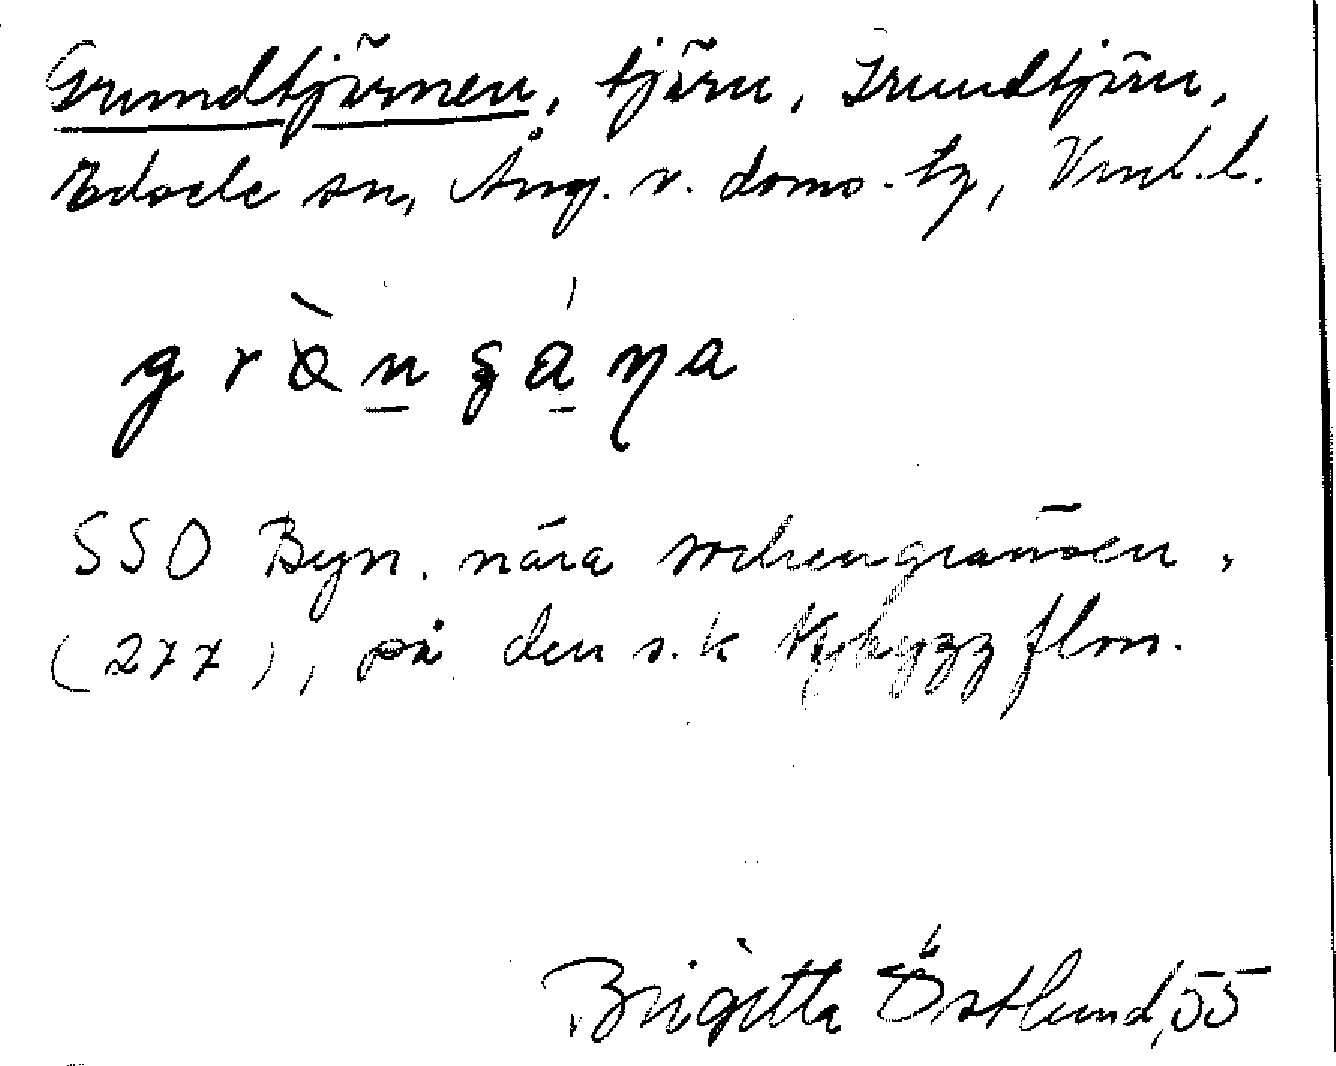 Grundtjärnen, tjärn, Grundtjärn,
Edsele sn, Ång. v. doms. tg, Vnl. l.
SSO Byn. nära sockengränsen,
(277), på den s.k flon.
Brigitta Östlund, 55